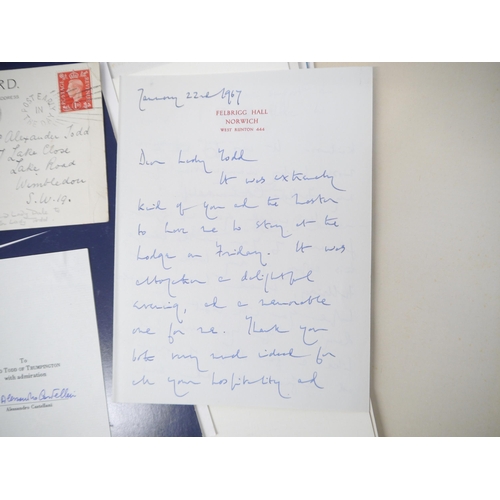 RD.
Alexander Todd
7 Lake Close
Lake Road
Wimbledon
S.W.19.
January 22nd 1967
FELBRIGG HALL
NORWICH
WEST RUNTON 444
Dear Lady Todd
It was extremely
kind of you and the Master
to have me to stay at the
Lodge on Friday. It was
altogether a delightful
evening, and a memorable
one for me. Thank you
both very much indeed for
all your hospitality and
To
TODD OF TRUMPINGTON
with admiration
Alessandro Castellani
Alessandro Castellani